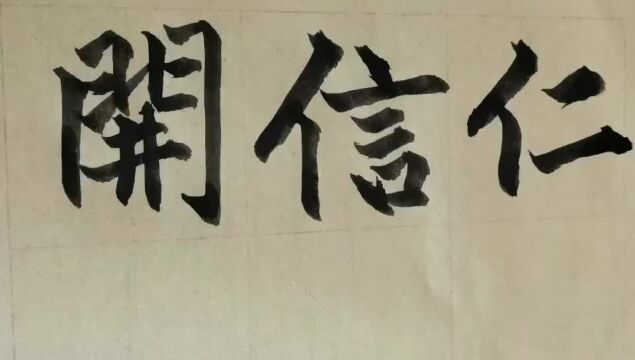 仁信開